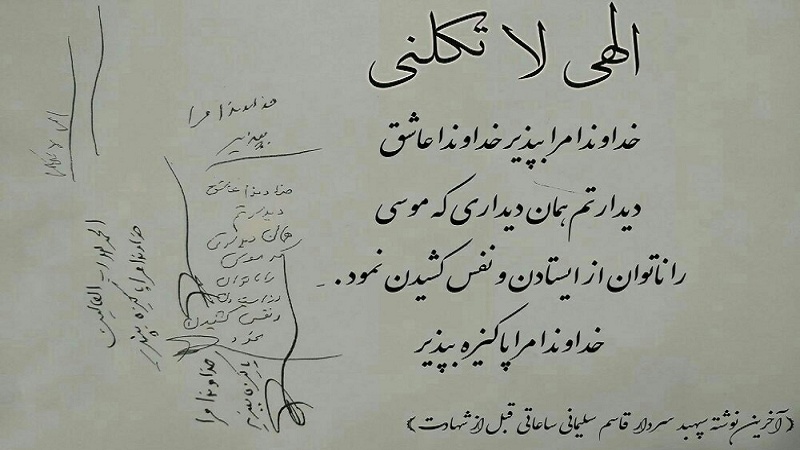 الهی لا تکلنی
خداوندا مرا بپذیر خداوندا عاشق
دیدارتم همان دیداری که موسی
را ناتوان از ایستادن و نفس کشیدن نمود.
خداوندا مرا پاکیزه بپذیر
(آخرین نوشته سپهبد سردار قاسم سلیمانی ساعاتی قبل از شهادت)
خداوندا مرا
بپذیر
خداوندا عاشق
دیدارتم
همان دیداری
که موسی
را ناتوان
از ایستادن
و نفس کشیدن
نمود
خداوندا مرا
پاکیزه بپذیر
الحمد لله رب العالمین
خداوندا مرا پاکیزه بپذیر
الهی لا تکلنی